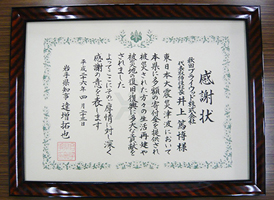 感謝状
秋田プライウッド株式会社
代表取締役社長 井上篤博様
東日本大震災津波において
本県に多額の寄附金を提供され
被災された方々の生活再建や
被災地の復旧復興に多大な貢献を
されました
よってここにその厚情に対し深く
感謝の意を表します
平成二十六年四月二十五日
岩手県知事 達増拓也